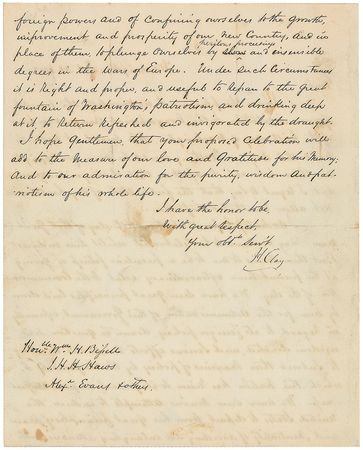 foreign powers and of Confining ourselves to the growth,
improvement and prosperity of our New Country, and in
place of them, to plunge Ourselves by previous proceedings and insensible
degrees in the Wars of Europe. Under Such Circumstances
it is Right and proper, and useful to Repair to the great
fountain of Washington's patriotism and drinking deep
at it, to Return Refreshed and invigorated by the draught.
I hope Gentlemen, that your proposed Celebration will
add to the Measure of our love and Gratitude for his Memory;
And to our admiration for the purity, wisdom and pat-
riotism of his whole life.
I have the honor to be,
With great respect,
Your obt. Serv't
H Clay
Hon.ble Wm H. Bissell
J. H. H. Haws
Alexr. Evans & others.